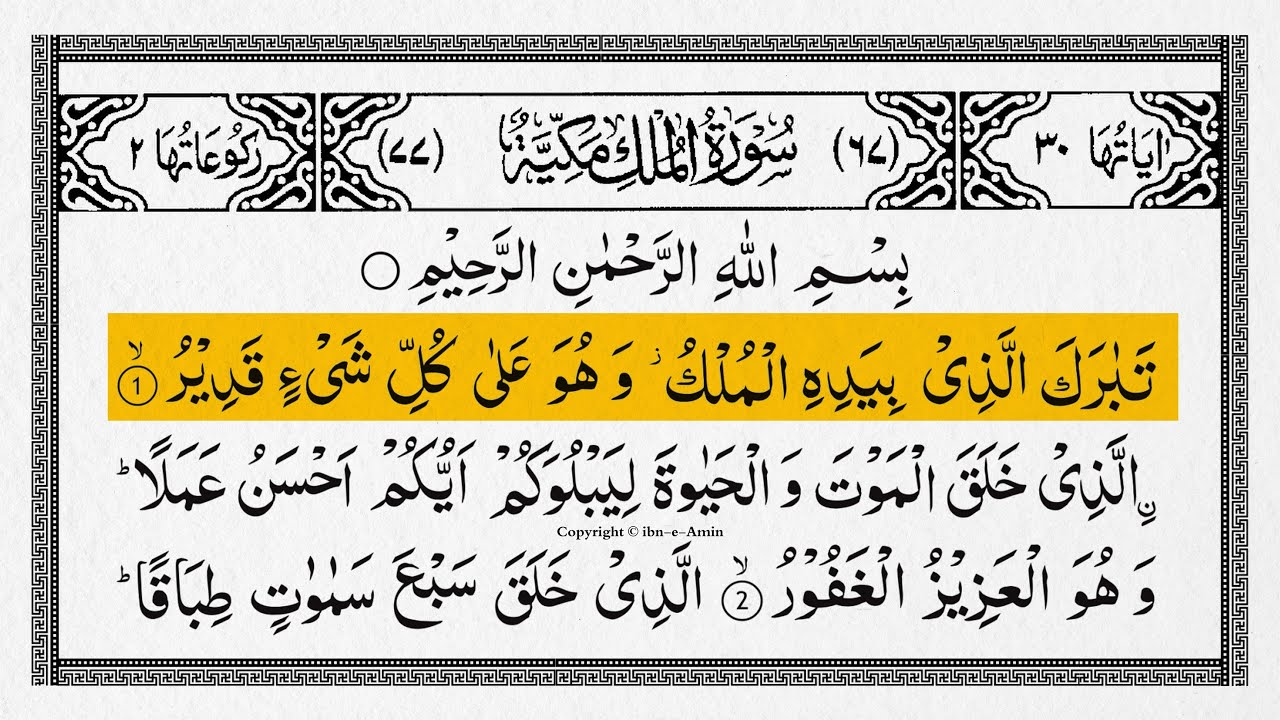 اٰیَاتُهَا ٣٠ (٦٧) سُوْرَةُ الْمُلْكِ مَكِّیَّةٌ (٧٧) رُكُوْعَاتُهَا ٢
بِسْمِ اللّٰهِ الرَّحْمٰنِ الرَّحِیْمِ
تَبٰرَكَ الَّذِیْ بِیَدِهِ الْمُلْكُ ؗ وَ هُوَ عَلٰى كُلِّ شَیْءٍ قَدِیْرُ ۙ 1
ِ۟الَّذِیْ خَلَقَ الْمَوْتَ وَ الْحَیٰوةَ لِیَبْلُوَكُمْ اَیُّكُمْ اَحْسَنُ عَمَلًا ؕ
Copyright © ibn-e-Amin
وَ هُوَ الْعَزِیْزُ الْغَفُوْرُ ۙ 2 الَّذِیْ خَلَقَ سَبْعَ سَمٰوٰتٍ طِبَاقًا ؕ